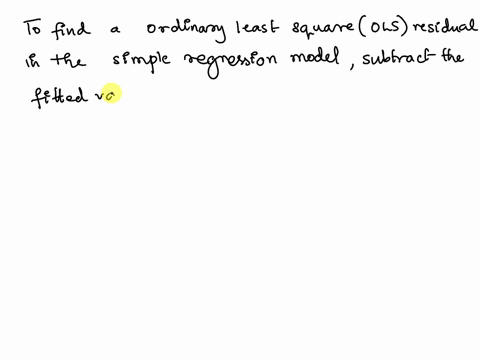 To find a ordinary least square (OLS) residual
in the simple regression model, subtract the
fitted va